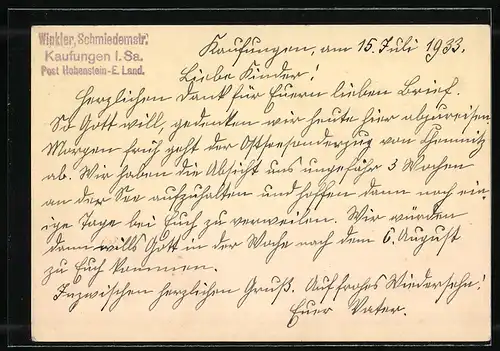 Winkler, Schmiedemstr.
Kaufungen i. Sa.
Post Hohenstein-E. Land.
Kaufungen, am 15. Juli 1933.
Liebe Kinder!
Herzlichen Dank für Euern lieben Brief.
So Gott will, gedenken wir heute hier abzureisen
Morgen früh geht der Ostseesonderzug von Chemnitz
ab. Wir haben die Absicht uns ungefähr 3 Wochen
an der See aufzuhalten und hoffen dann noch ein-
ige Tage bei Euch zu verweilen. Wir würden
dann wills Gott in der Woche nach dem 6. August
zu Euch kommen.
Inzwischen herzlichen Gruß. Auf frohes Wiedersehn!
Euer Vater.